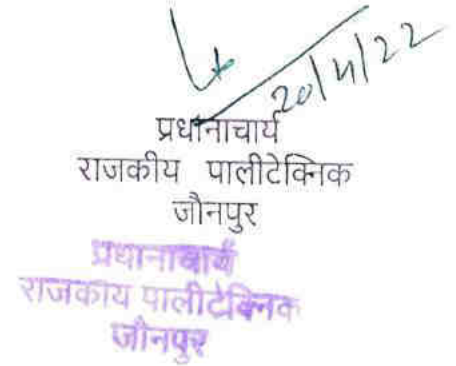 20/4/22
प्रधानाचार्य
राजकीय पालीटेक्निक
जौनपुर
प्रधानाचार्य
राजकीय पालीटेक्निक
जौनपुर